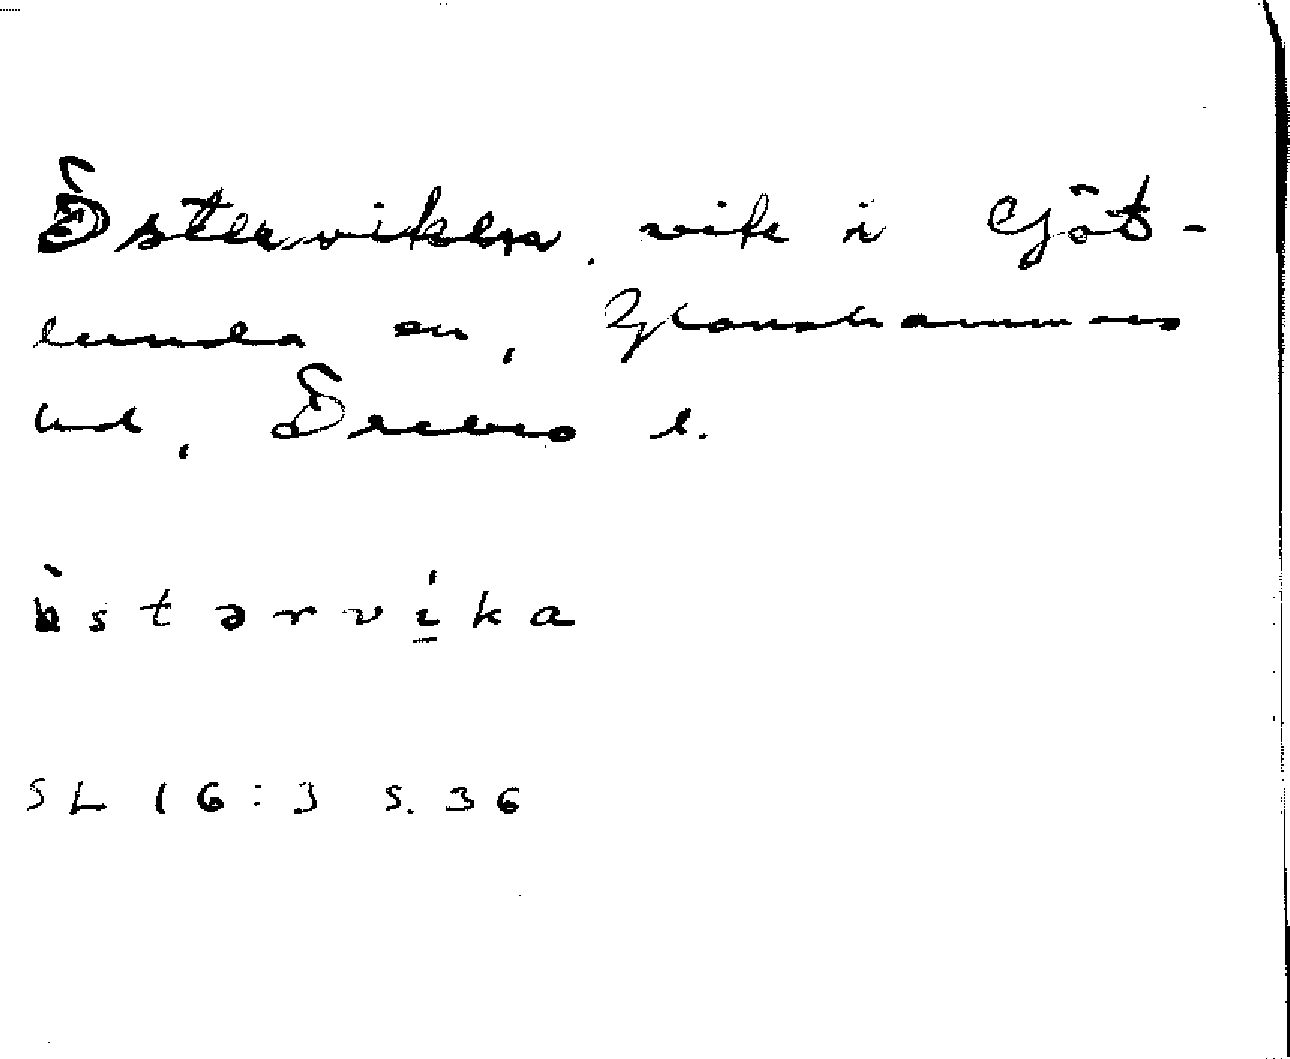 Österviken, vik i Göt-
lunda sn, Glanshammars
hd, Örebro l.
östərvika
SL 16:3 s. 36